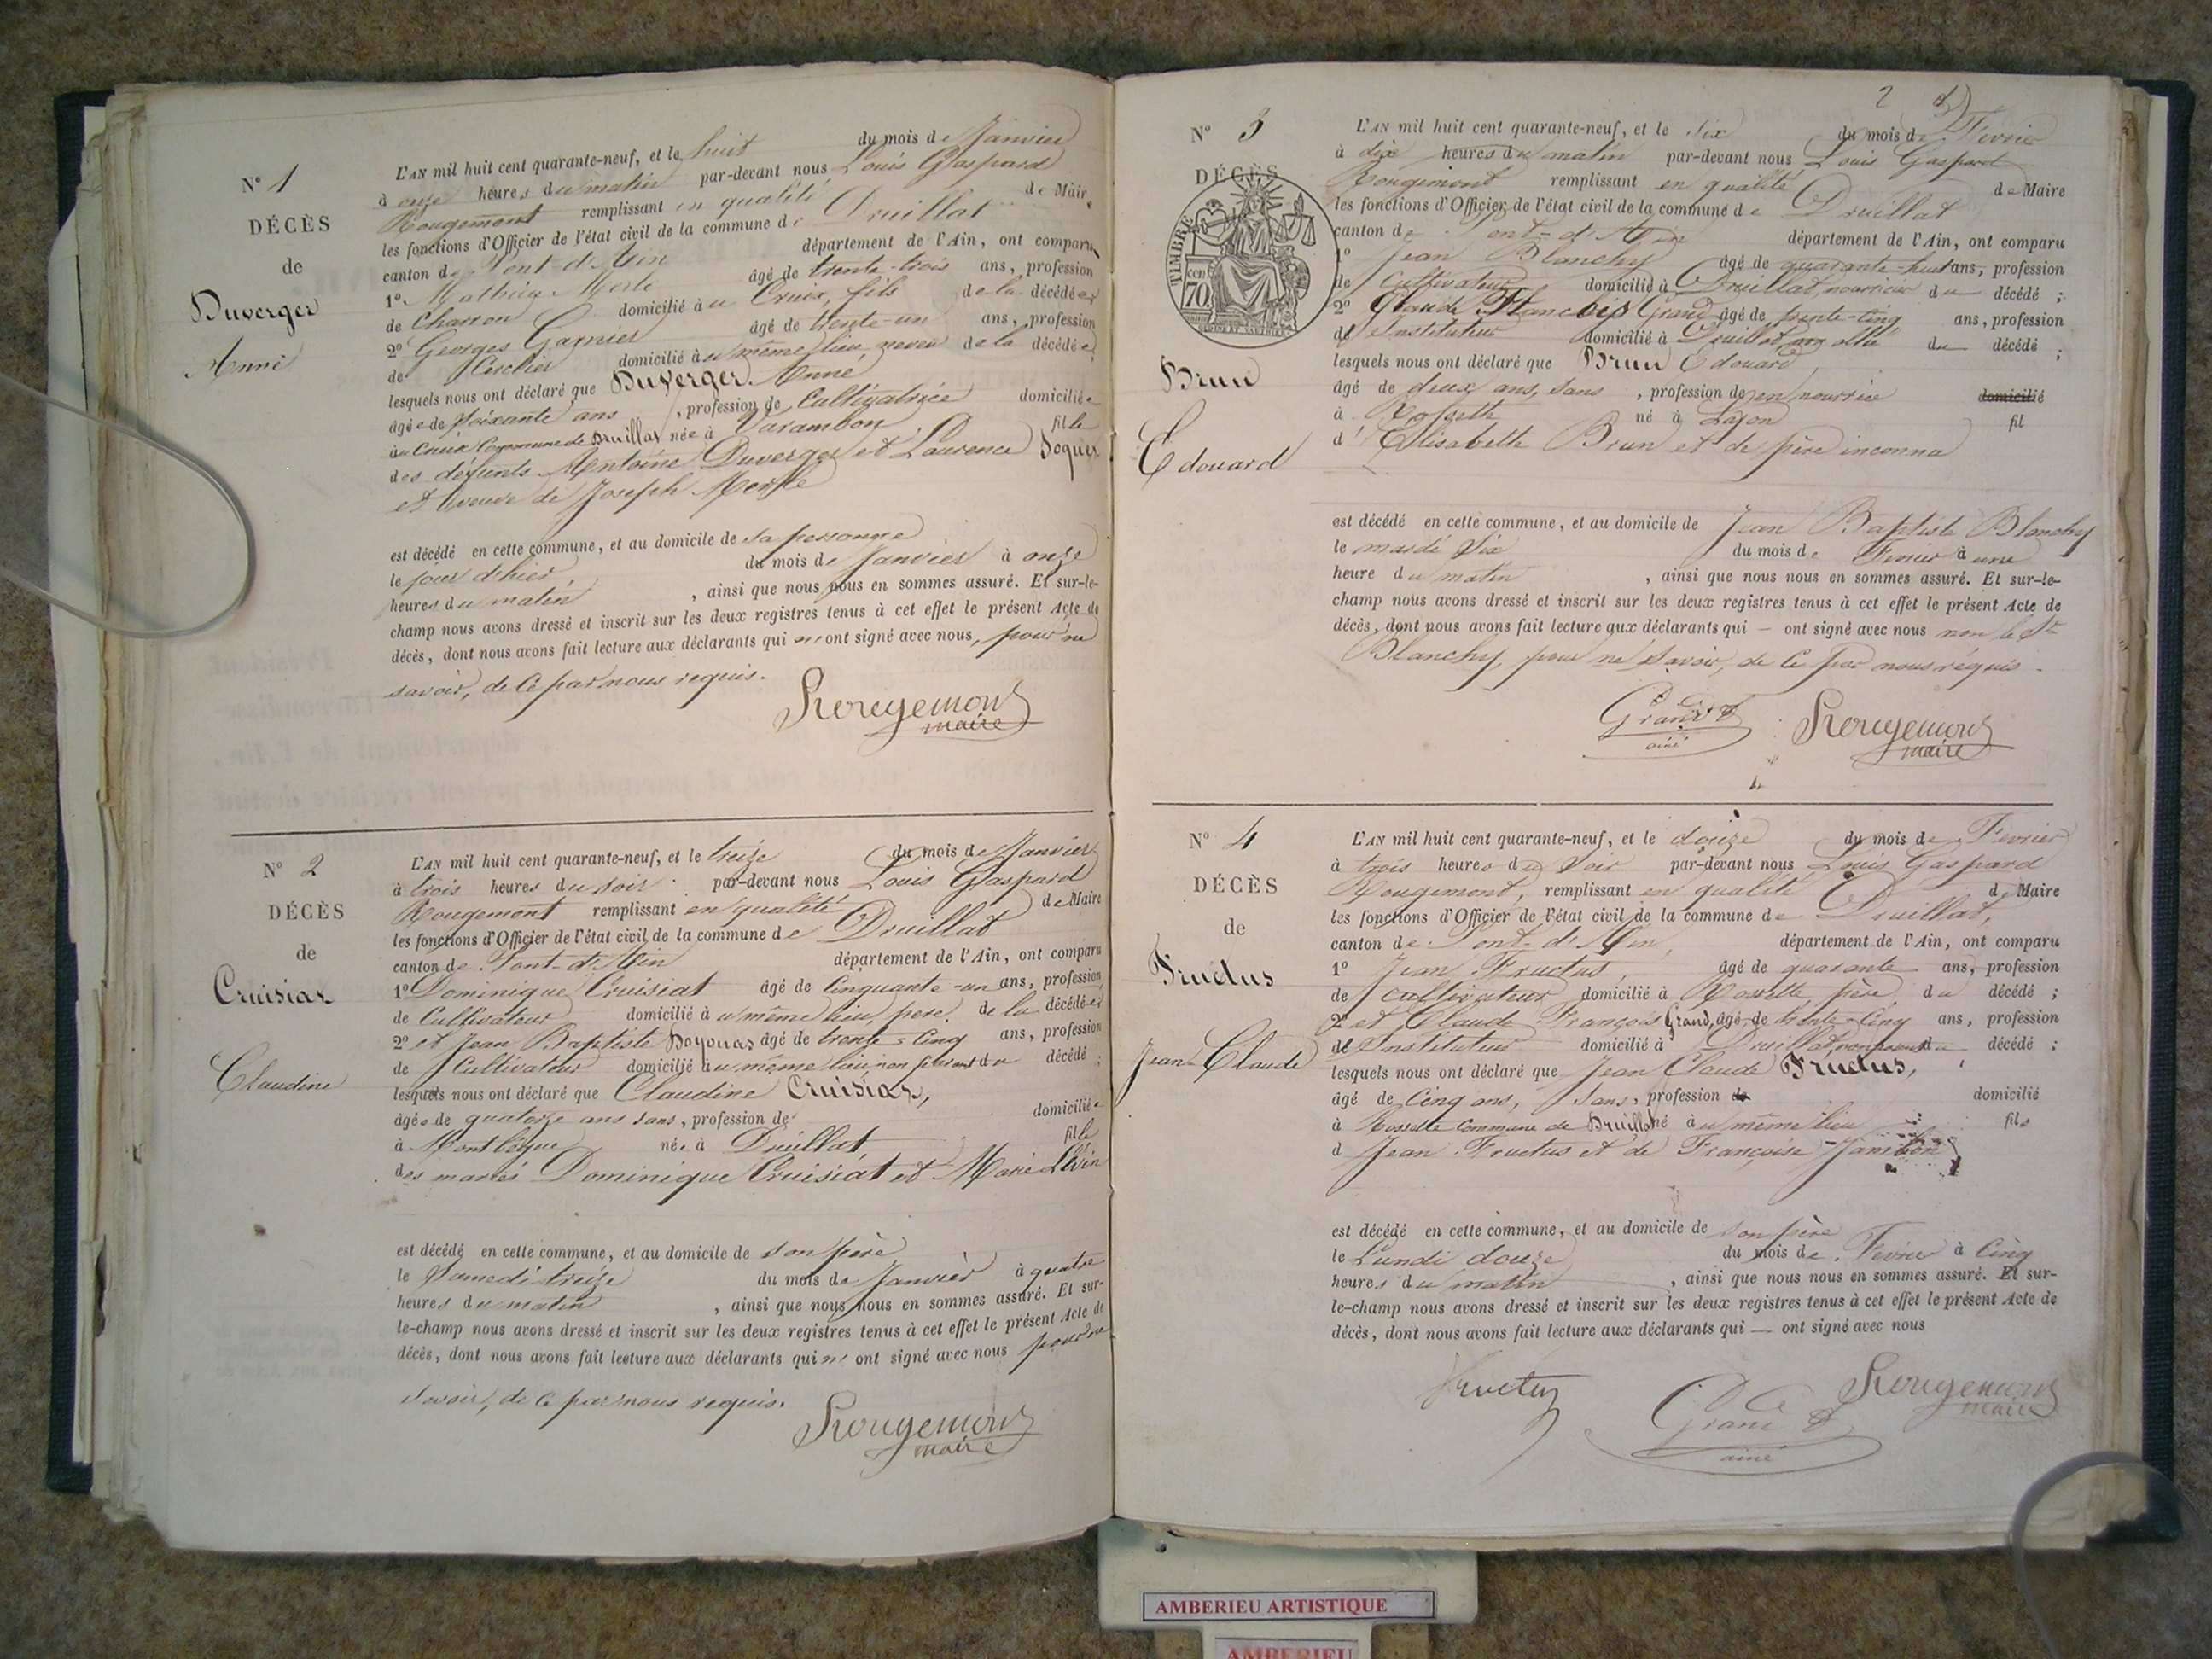 N° 1
DÉCÈS
de
Duverger
Anne
L'AN mil huit cent quarante-neuf, et le huit du mois de Janvier
à onze heures du matin par-devant nous Louis Gaspard
Rougemont remplissant en qualité de Maire
les fonctions d'Officier de l'état civil de la commune de Druillat
canton de Pont-d'Ain département de l'Ain, ont comparu
1° Mathieu Merle âgé de trente-trois ans, profession
de Charron domicilié à u Cruix, fils de la décédée
2° Georges Garnier âgé de trente-un ans, profession
de domicilié à u même lieu, neveu de la décédée
lesquels nous ont déclaré que Duverger Anne
âgée de soixante ans, profession de Cultivatrice domiciliée
au Cruix Commune de Druillat née à Varambon fille
des défunts Antoine Duverger et Laurence Boquer
et veuve de Joseph Merle
est décédé en cette commune, et au domicile de sa personne
le jour d'hier, du mois de Janvier à onze
heures du matin, ainsi que nous nous en sommes assuré. Et sur-le-
champ nous avons dressé et inscrit sur les deux registres tenus à cet effet le présent Acte de
décès, dont nous avons fait lecture aux déclarants qui n'ont signé avec nous, pour ne
savoir, de ce par nous requis.
Rougemont
maire
N° 2
DÉCÈS
de
Cruisiat
Claudine
L'AN mil huit cent quarante-neuf, et le treize du mois de Janvier
à trois heures du soir par-devant nous Louis Gaspard
Rougemont remplissant en qualité de Maire
les fonctions d'Officier de l'état civil de la commune de Druillat
canton de Pont-d'Ain département de l'Ain, ont comparu
1° Dominique Cruisiat âgé de Cinquante-un ans, profession
de Cultivateur domicilié à u même lieu, père de la décédée
2° et Jean Baptiste Doyonas âgé de trente-cinq ans, profession
de Cultivateur domicilié à u même lieu, non parent du décédé ;
lesquels nous ont déclaré que Claudine Cruisiat,
âgée de quatorze ans sans, profession de domiciliée
à Montbègue née à Druillat fille
des mariés Dominique Cruisiat et Marie
est décédé en cette commune, et au domicile de son père
le Samedi treize du mois de Janvier à quatre
heures du matin, ainsi que nous nous en sommes assuré. Et sur-
le-champ nous avons dressé et inscrit sur les deux registres tenus à cet effet le présent Acte de
décès, dont nous avons fait lecture aux déclarants qui n'ont signé avec nous pour ne
savoir, de ce par nous requis.
Rougemont
maire
2
N° 3
DÉCÈS
TIMBRE
70
Brun
Edouard
L'AN mil huit cent quarante-neuf, et le six du mois de Fevrier
à dix heures du matin par-devant nous Louis Gaspard
Rougemont remplissant en qualité de Maire
les fonctions d'Officier de l'état civil de la commune de Druillat
canton de Pont-d'Ain département de l'Ain, ont comparu
1° Jean Blanchy âgé de quarante-huit ans, profession
de Cultivateur domicilié à Druillat, nourricier du décédé ;
2° Claude François Grand âgé de trente-cinq ans, profession
de Instituteur domicilié à Druillat, non allié du décédé ;
lesquels nous ont déclaré que Brun Edouard
âgé de deux ans, sans, profession de en nourrice domicilié
à Rossette né à Lyon fil
d'Elisabeth Brun et de père inconnu
est décédé en cette commune, et au domicile de Jean Baptiste Blanchy
le mardi Six du mois de Fevrier à une
heure du matin, ainsi que nous nous en sommes assuré. Et sur-le-
champ nous avons dressé et inscrit sur les deux registres tenus à cet effet le présent Acte de
décès, dont nous avons fait lecture aux déclarants qui — ont signé avec nous non le Sr
Blanchy, pour ne savoir, de ce par nous requis.
Grand
ainé
Rougemont
maire
N° 4
DÉCÈS
de
Fructus
Jean-Claude
L'AN mil huit cent quarante-neuf, et le douze du mois de Fevrier
à trois heures du soir par-devant nous Louis Gaspard
Rougemont, remplissant en qualité d Maire
les fonctions d'Officier de l'état civil de la commune de Druillat,
canton de Pont-d'Ain, département de l'Ain, ont comparu
1° Jean Fructus, âgé de quarante ans, profession
de cultivateur domicilié à Rossette, père du décédé ;
2° et Claude François Grand, âgé de trente-cinq ans, profession
de Instituteur domicilié à Druillat, non parent du décédé ;
lesquels nous ont déclaré que Jean Claude Fructus,
âgé de cinq ans, sans, profession de domicilié
à Rossette Commune de Druillat né à u même lieu fils
d Jean Fructus et de Françoise Jambon
est décédé en cette commune, et au domicile de son père
le Lundi douze du mois de Fevrier à Cinq
heures du matin, ainsi que nous nous en sommes assuré. Et sur-
le-champ nous avons dressé et inscrit sur les deux registres tenus à cet effet le présent Acte de
décès, dont nous avons fait lecture aux déclarants qui — ont signé avec nous
Fructus
Grand
ainé
Rougemont
maire
AMBERIEU ARTISTIQUE
AMBERIEU